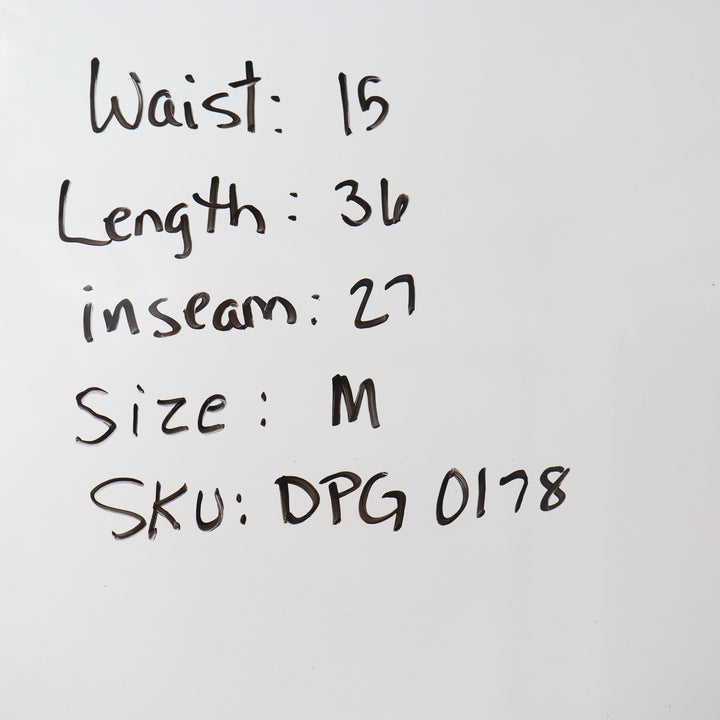 Waist: 15
Length: 36
inseam: 27
Size: M
SKU: DPG 0178